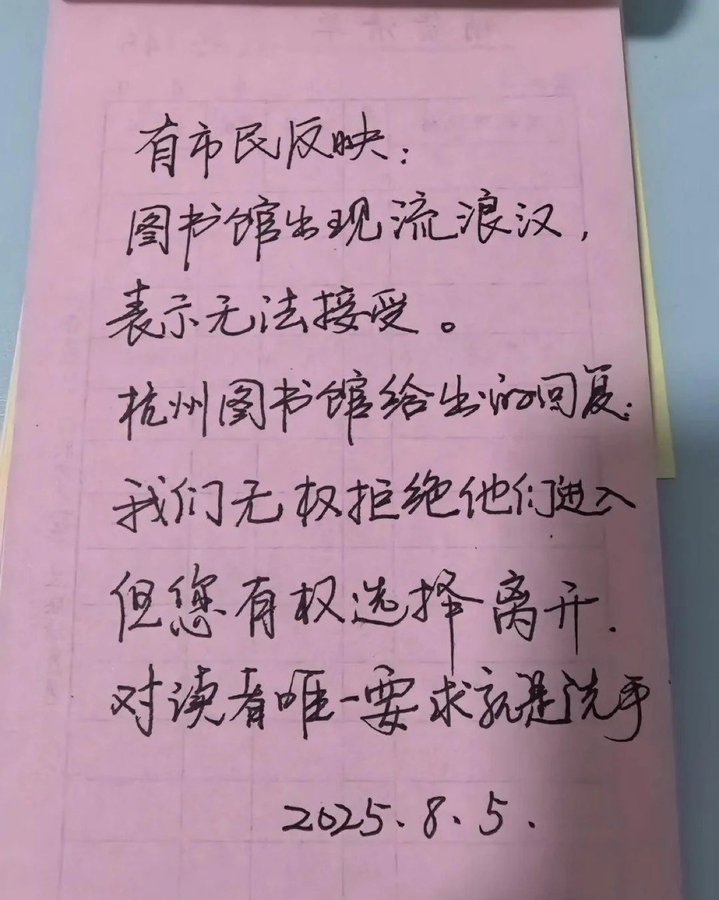 有市民反映：
图书馆出现流浪汉，
表示无法接受。
杭州图书馆给出的回复：
我们无权拒绝他们进入
但您有权选择离开．
对读者唯一要求就是洗手
2025.8.5.